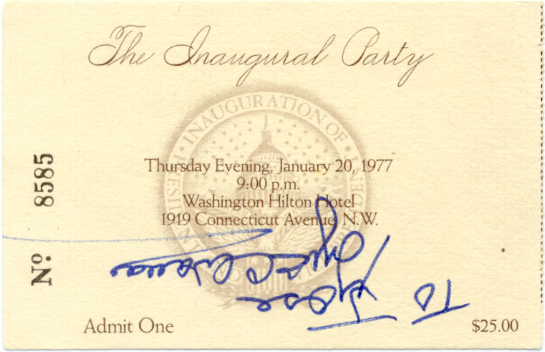 The Inaugural Party
INAUGURATION OF
Thursday Evening, January 20, 1977
9:00 p.m.
Washington Hilton Hotel
1919 Connecticut Avenue, N.W.
Nº 8585
To Jose
Admit One
$25.00